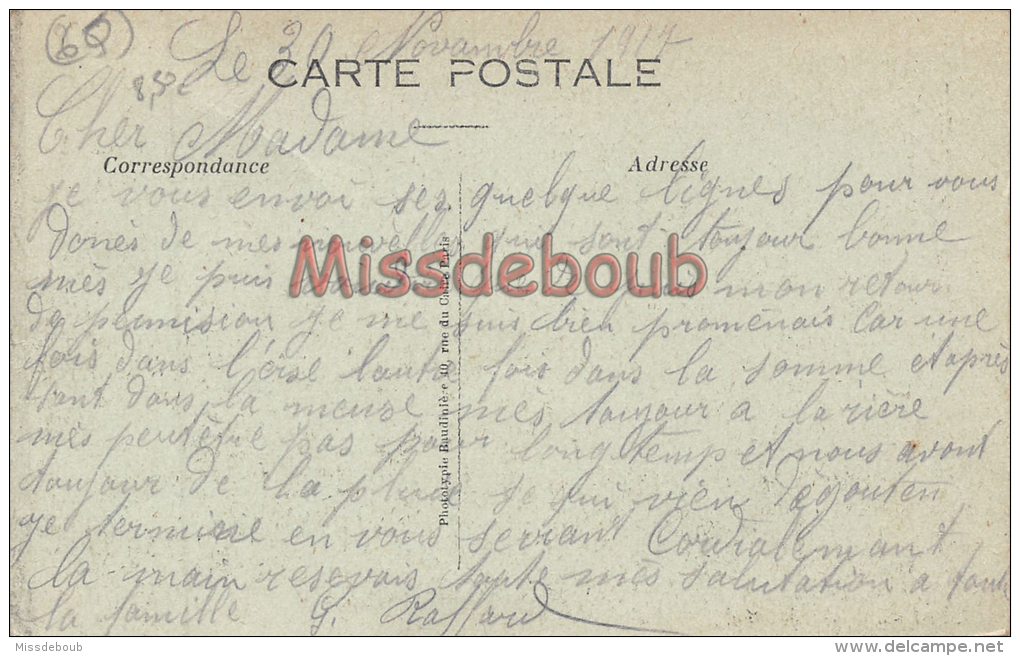 60
8,50
Le 30 Novambre 1917
CARTE POSTALE
Cher Madame
Correspondance
Adresse
je vous envoi ses quelque lignes pour vous
donès de mes nouvèlles qui sont toujour bonne
mès je puis depuis mon retour
de permision je me suis bien promenais car une
fois dans l'oise lautre fois dans la somme et après
sont dans la meuse mès toujour a larière
mès peutètre pas pour longtemp et nous avont
toujour de la pluie je sui vien dégouten
je termine en vous serrant Cordialemant
la main resevais toute mès salutation a toute
la famille G. Raffard
Phototypie Baudinière 40 rue du Caire Paris
Missdeboub
Missdeboub
delcampe.net